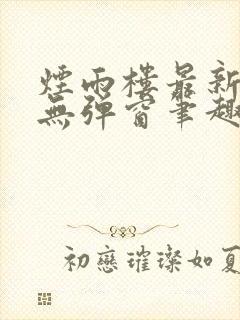 煙雨樓最新
無彈窗筆趣
初戀璀璨如夏